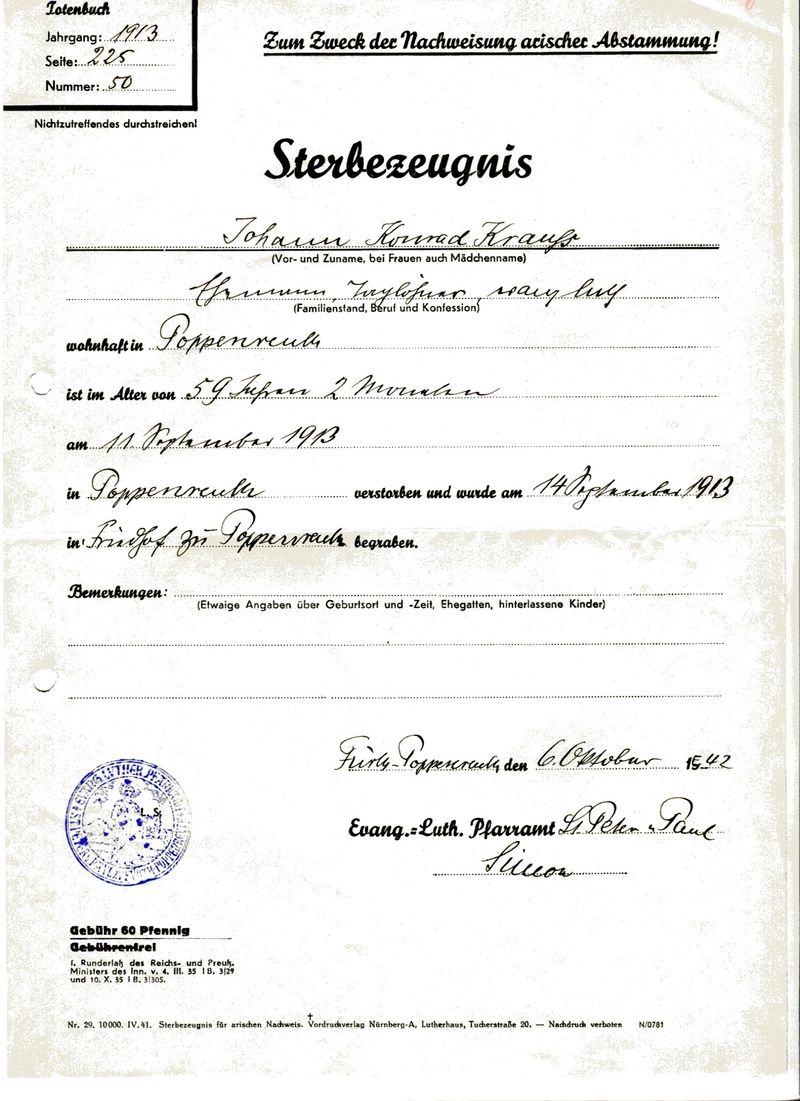 Totenbuch
Jahrgang: 1913
Seite: 225
Nummer: 50
Nichtzutreffendes durchstreichen!
Zum Zweck der Nachweisung arischer Abstammung!
Sterbezeugnis
Johann Konrad Krauß
(Vor- und Zuname, bei Frauen auch Mädchenname)
Ehemann, Taglöhner, evangelisch
(Familienstand, Beruf und Konfession)
wohnhaft in Poppenreuth
ist im Alter von 59 Jahren 2 Monaten
am 11 September 1913
in Poppenreuth verstorben und wurde am 14 September 1913
in Friedhof zu Poppenreuth begraben.
Bemerkungen:
(Etwaige Angaben über Geburtsort und -Zeit, Ehegatten, hinterlassene Kinder)
Fürth-Poppenreuth, den 6. Oktober 1942
L. S.
Evang.=Luth. Pfarramt St. Peter u. Paul
Simon
Gebühr 60 Pfennig
Gebührenfrei
l. Runderlaß des Reichs- und Preuß.
Ministers des Inn. v. 4. III. 35 I B. 3|29
und 10. X. 35 I B. 3|305.
Nr. 29. 10000. IV. 41. Sterbezeugnis für arischen Nachweis. Vordruckverlag Nürnberg-A, Lutherhaus, Tucherstraße 20. — Nachdruck verboten N/0781